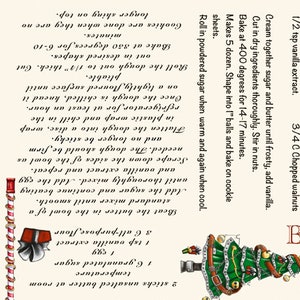 1/2 tsp vanilla extract.
3/4 C Chopped walnuts
Cream together sugar and butter until frosty, add vanilla.
Cut in dry ingredients thoroughly. Stir in nuts.
Bake at 400 degrees for 14-17 minutes.
Makes 5 dozen. Shape into 1" balls and bake on cookie
sheets.
Roll in powdered sugar when warm and again when cool.
2 sticks unsalted butter at room
temperature
granulated sugar
1 egg
1 tsp vanilla extract
3 C all-purpose flour
Beat the butter in the bowl of a
standard mixer until smooth.
Add the sugar and continue beating
until thoroughly mixed. Add the egg
and vanilla extract and repeat.
Scrape down the sides of the bowl as
needed. The dough should be firm,
and no longer be sticky.
Flatten dough into a disc, wrap
in plastic wrap and chill in the
refrigerator, for at least an hour.
once dough is chilled, knead it
on a lightly, floured surface until
pliable.
Roll the dough out to
cut out in
shaped desired.
Bake at 350 degrees, for 8-10
minutes.
Cookies are done when they are no
longer shiny on top.